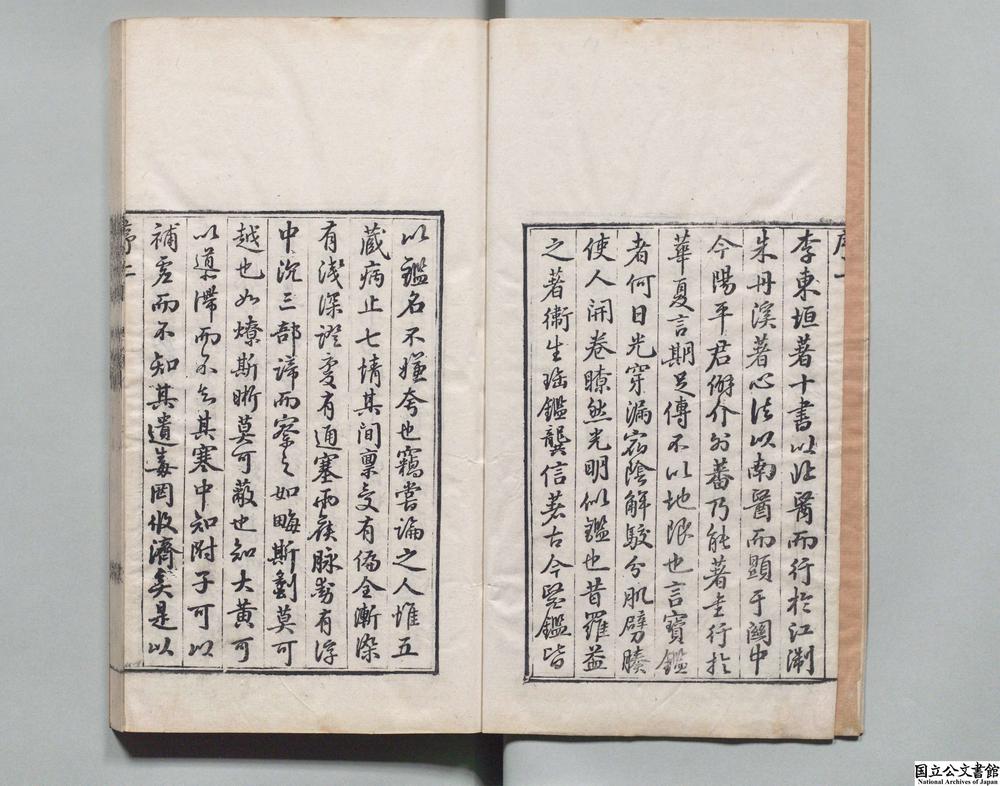 序一
李東垣著十書以北醫而行於江淛
朱丹溪著心法以南醫而顯于關中
今陽平君僻介外蕃乃能著書行於
華夏言期足傳不以地限也言寶鑑
者何日光穿漏宿陰解駁分肌劈腠
使人開卷瞭然光明似鑑也昔羅益
之著衛生珤鑑龔信著古今醫鑑皆
以鑑名不嫌夸也竊嘗論之人惟五
藏病止七情其間禀受有偏全漸染
有淺深證變有通塞而矦脉者有浮
中沉三部諦而察之如晦斯劃莫可
越也如燎斯晣莫可蔽也知大黃可
以導滯而不知其寒中知附子可以
補虛而不知其遺毒罔攸濟矣是以
序二
国立公文書館
National Archives of Japan